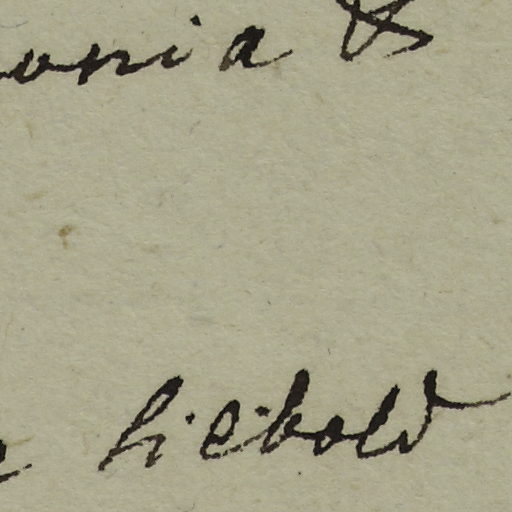 onia &
Siebold